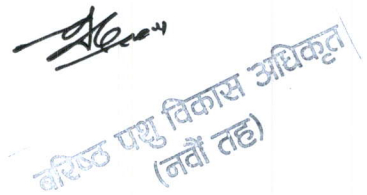 बरिष्ठ पशु विकास अधिकृत
(नवौं तह)